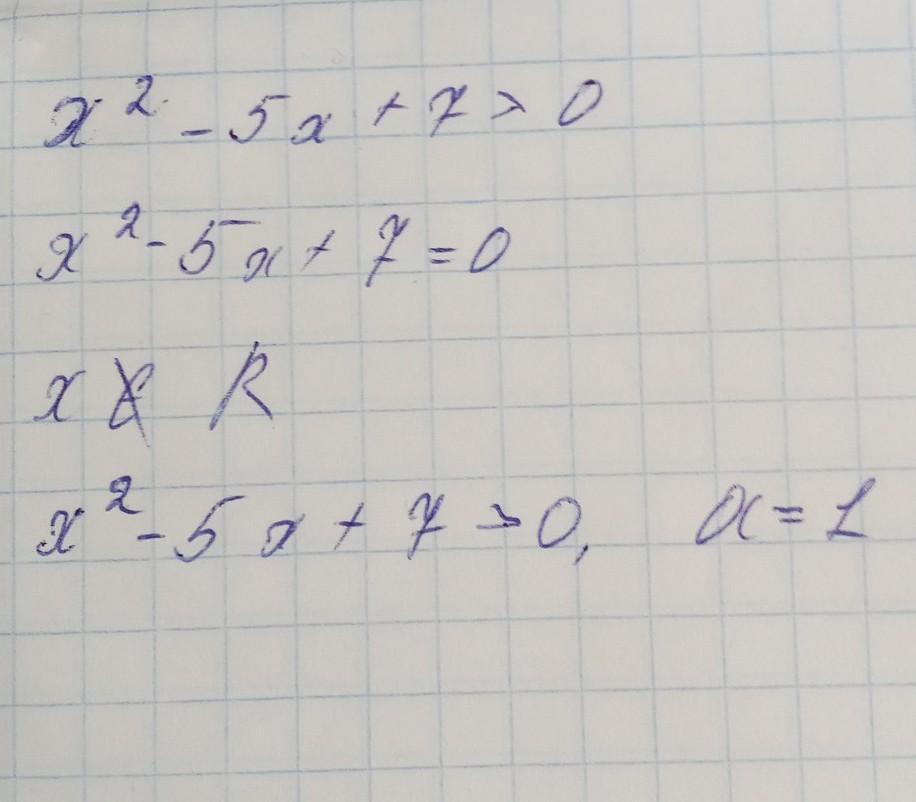 x² - 5x + 7 > 0
x² - 5x + 7 = 0
x ∉ R
x² - 5x + 7 > 0, a = 1